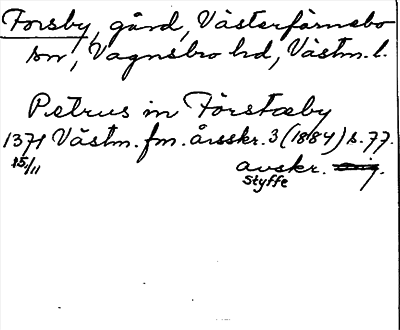 Forsby, gård, Västerfärnebo
sn, Vagnsbro hd, Västm. l.
Petrus in Förstæby
1371 Västm. fm. årsskr. 3 (1884) s. 77.
15/11 avskr. orig.
Styffe